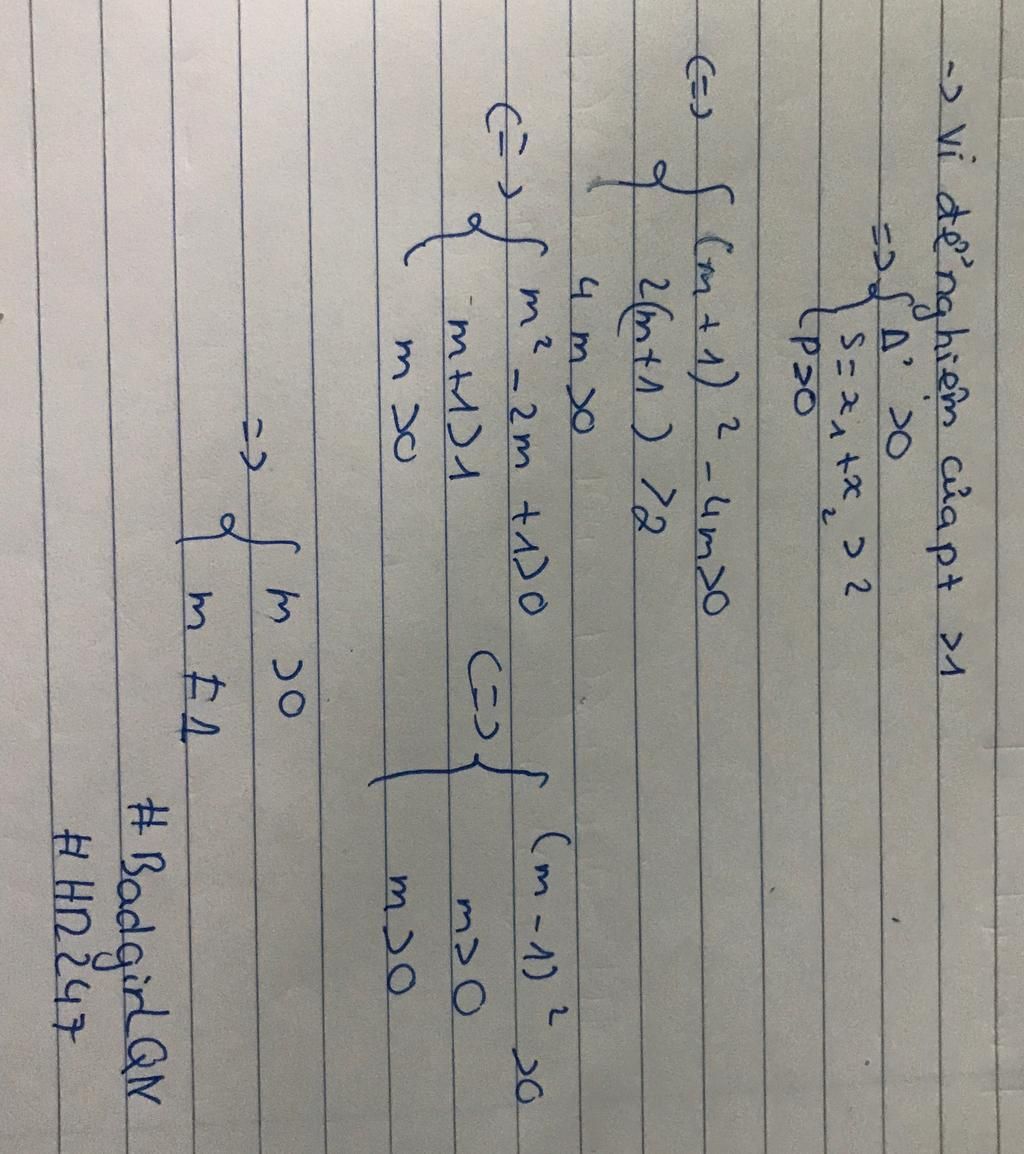 -> Vì để nghiệm của pt >1
=> { Δ' >0
S = x₁ + x₂ > 2
P>0
(=) { (m+1)² - 4m>0
2(m+1) >2
4m>0
(=) { m² - 2m +1>0 (=) { (m-1)² >0
m+1>1 m>0
m>0 m>0
=> { m >0
m ≠ 1
#BadgirlQN
#HD247